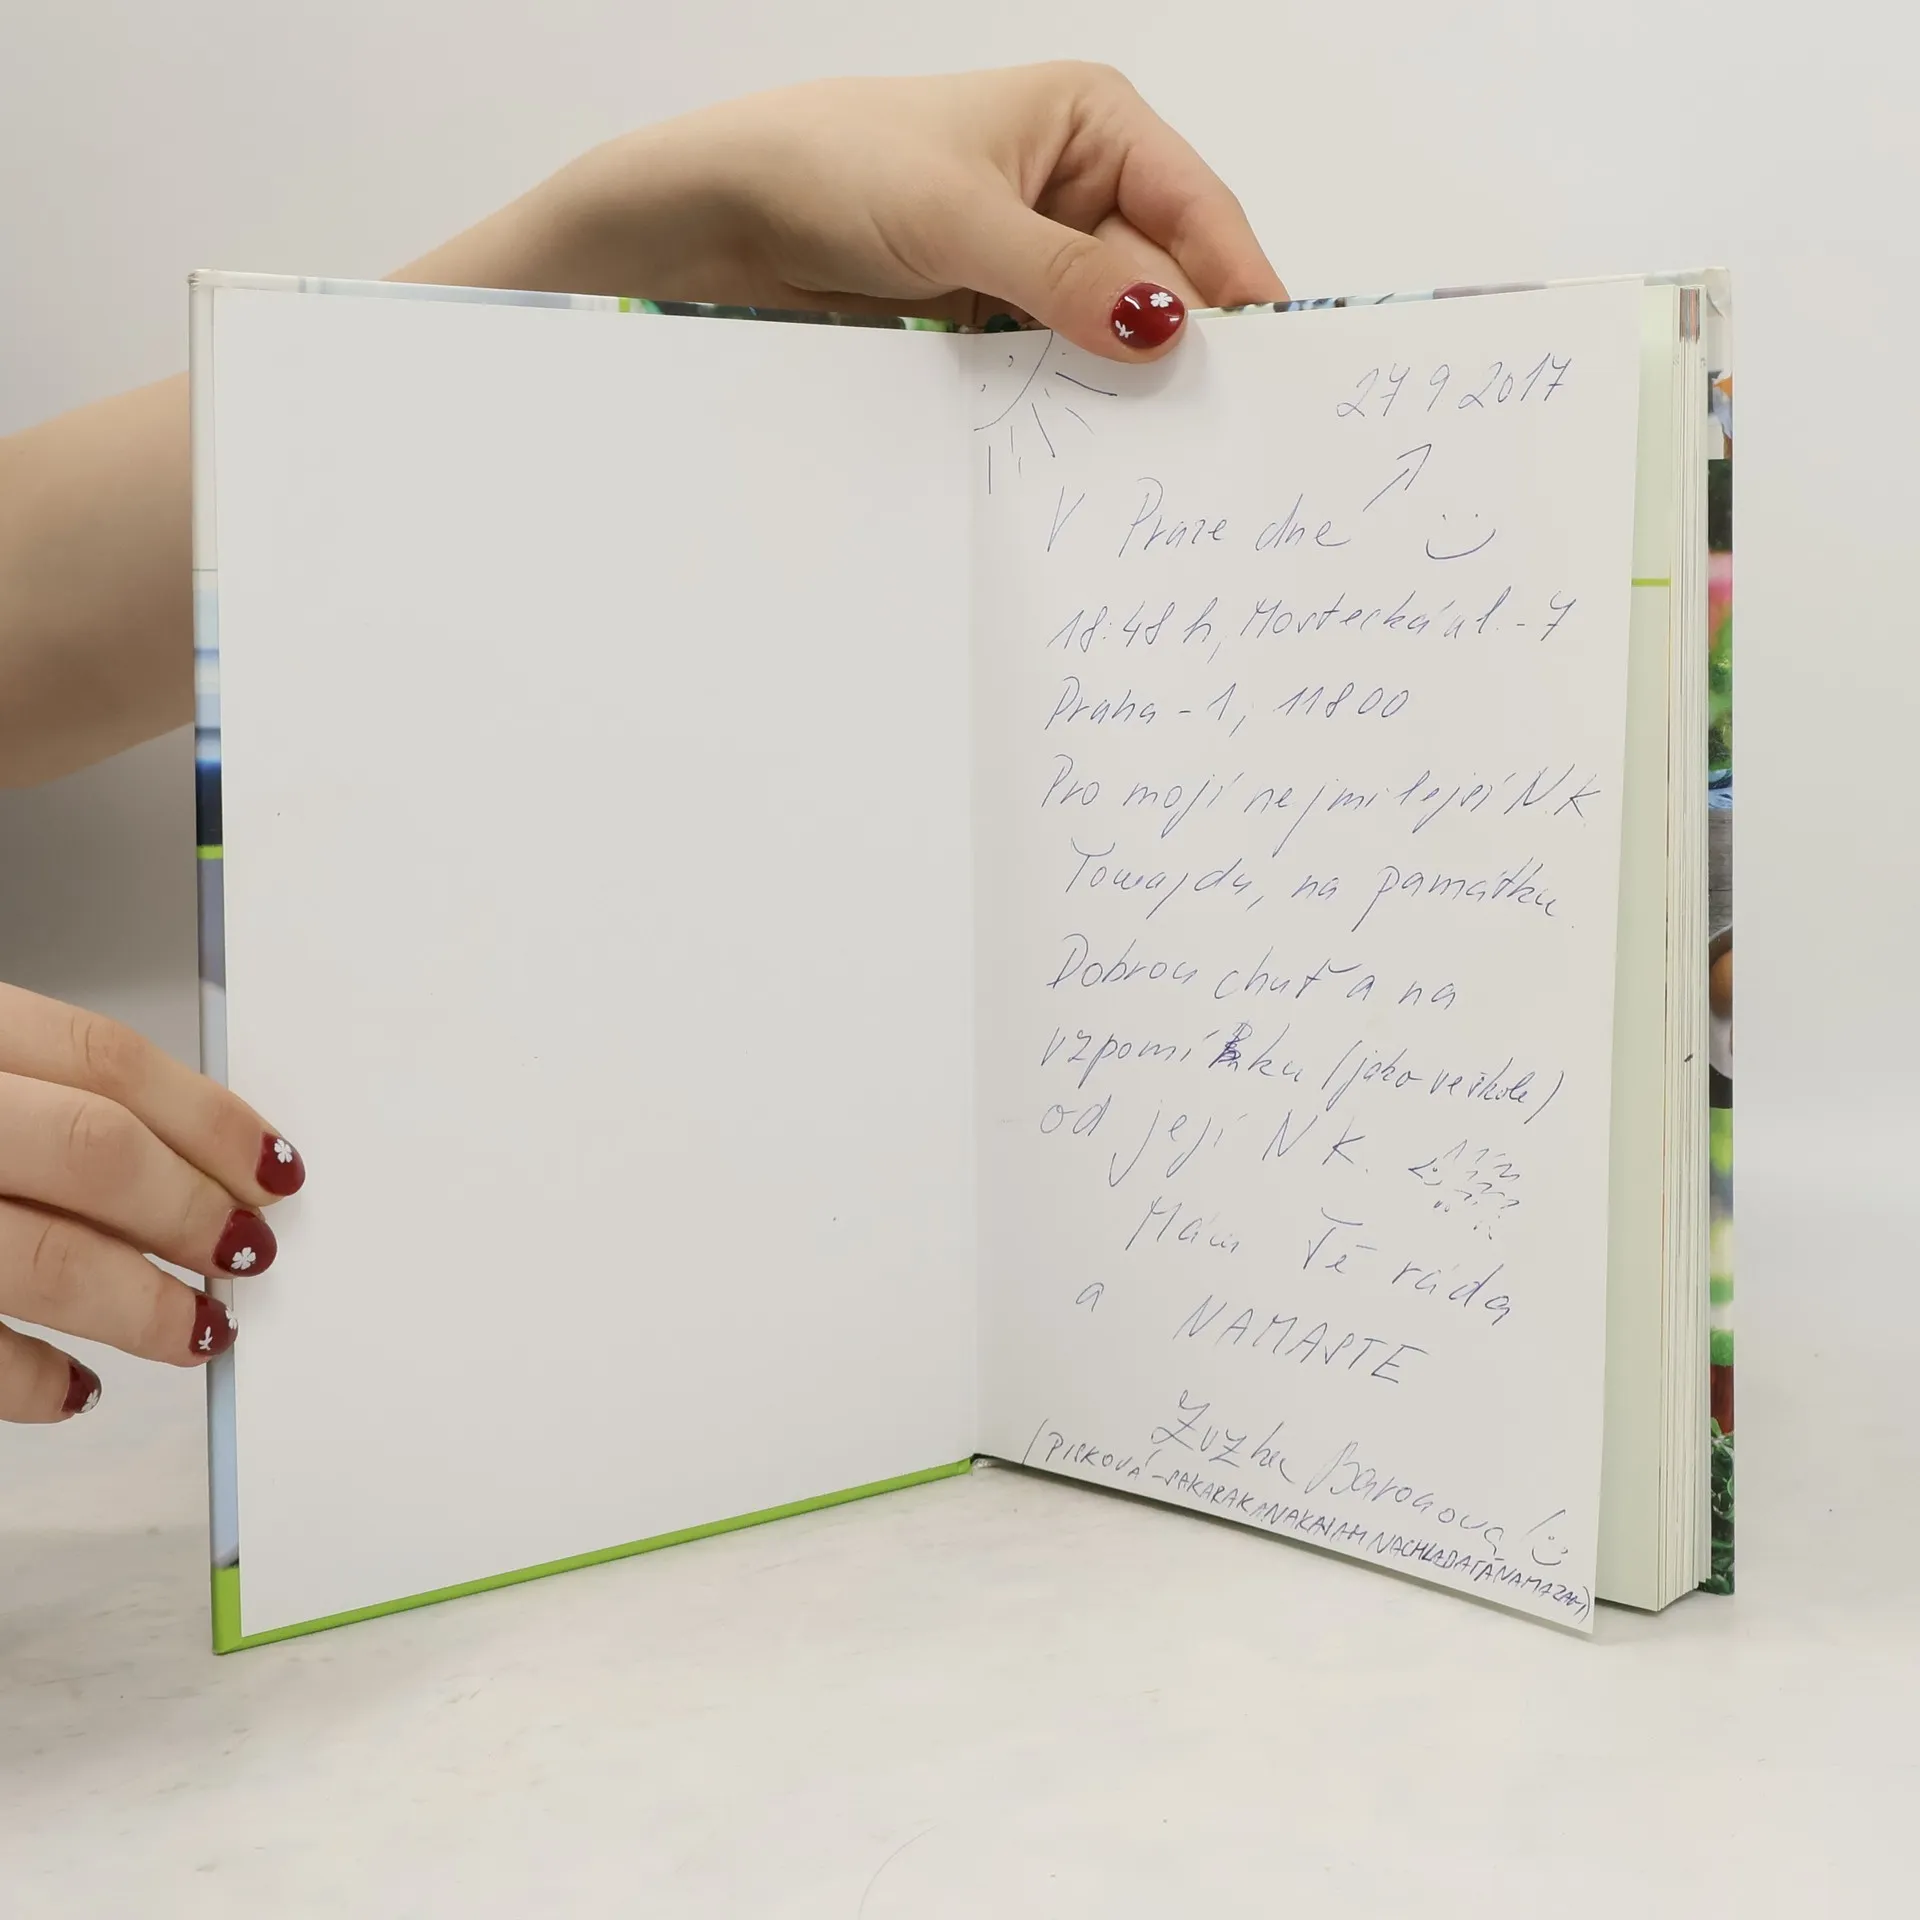 27 9 2017
V Praze dne
18:48 h, Mostecká ul. - 7
Praha - 1, 11800
Pro mojí nejmilejší N.K.
na památku.
Dobrou chuť a na
vzpomínku (jako ve škole)
od její N K.
Mám Tě ráda
a NAMASTE
Zuzka
(PISKOVÁ